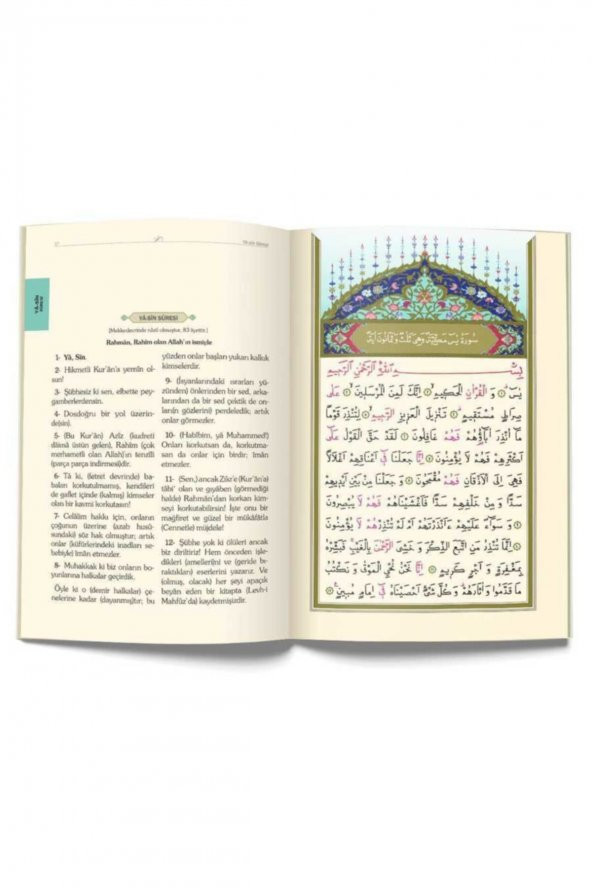 Yâ-sîn Sûresi
YÂ-SÎN
SÛRESİ
YÂ-SÎN SÛRESİ
(Mekke devrinde nâzil olmuştur, 83 âyettir.)
Rahmân, Rahîm olan Allah'ın ismiyle
1- Yâ, Sîn.
2- Hikmetli Kur'ân'a yemîn ol-
sun!
3- Şübhesiz ki sen, elbette pey-
gamberlerdensin.
4- Dosdoğru bir yol üzerin-
de(sin).
5- (Bu Kur'ân) Azîz (kudreti
dâimâ üstün gelen), Rahîm (çok
merhametli olan Allah)'ın tenzîli
(parça parça indirmesi)dir.
6- Tâ ki, (fetret devrinde) ba-
baları korkutulmamış, kendileri
de gaflet içinde (kalmış) kimseler
olan bir kavmi korkutasın!
7- Celâlim hakkı için, onların
çoğunun üzerine (azab husû-
sundaki) söz hak olmuştur; artık
onlar (küfürlerindeki inadları se-
bebiyle) îmân etmezler.
8- Muhakkak ki biz onların bo-
yunlarına halkalar geçirdik.
Öyle ki o (demir halkalar) çe-
nelerine kadar (dayanmış)tır, bu
yüzden onlar başları yukarı kalkık
kimselerdir.
9- (İsyanlarındaki ısrarları yü-
zünden) önlerinden bir sed, arka-
larından da bir sed çektik de on-
ları(n gözlerini) perdeledik; artık
onlar görmezler.
10- (Habîbim, yâ Muhammed!)
Onları korkutsan da, korkutma-
san da onlar için birdir; îmân
etmezler.
11- (Sen,) ancak Zikr'e (Kur'ân'a)
tâbi' olan ve gıyâben (görmediği
halde) Rahmân'dan korkan kim-
seyi korkutabilirsin! İşte onu bir
mağfiret ve güzel bir mükâfâtla
(Cennetle) müjdele!
12- Şübhe yok ki ölüleri ancak
biz diriltiriz! Hem önceden işle-
dikleri (amelleri)ni ve (geride bı-
raktıkları) eserlerini yazarız. Ve
(olmuş, olacak) her şeyi apaçık
beyân eden bir kitapta (Levh-i
Mahfûz'da) kaydetmişizdir.
بِسْمِ اللّٰهِ الرَّحْمٰنِ الرَّحِيمِ
يٰسٓ ۝١ وَ الْقُرْاٰنِ الْحَكِيمِ ۝٢ اِنَّكَ لَمِنَ الْمُرْسَلِينَ ۝٣ عَلٰى
صِرَاطٍ مُسْتَقِيمٍ ۝٤ تَنْزِيلَ الْعَزِيزِ الرَّحِيمِ ۝٥ لِتُنْذِرَ قَوْمًا
مَٓا اُنْذِرَ اٰبَٓاؤُهُمْ فَهُمْ غَافِلُونَ ۝٦ لَقَدْ حَقَّ الْقَوْلُ عَلٰٓى
اَكْثَرِهِمْ فَهُمْ لَا يُؤْمِنُونَ ۝٧ اِنَّا جَعَلْنَا فِٓى اَعْنَاقِهِمْ اَغْلَالًا
فَهِىَ اِلَى الْاَذْقَانِ فَهُمْ مُقْمَحُونَ ۝٨ وَ جَعَلْنَا مِنْ بَيْنِ اَيْدِيهِمْ
سَدًّا وَ مِنْ خَلْفِهِمْ سَدًّا فَاَغْشَيْنَاهُمْ فَهُمْ لَا يُبْصِرُونَ
۝٩ وَ سَوَٓاءٌ عَلَيْهِمْ ءَاَنْذَرْتَهُمْ اَمْ لَمْ تُنْذِرْهُمْ لَا يُؤْمِنُونَ
۝١٠ اِنَّمَا تُنْذِرُ مَنِ اتَّبَعَ الذِّكْرَ وَ خَشِىَ الرَّحْمٰنَ بِالْغَيْبِ فَبَشِّرْهُ
بِمَغْفِرَةٍ وَ اَجْرٍ كَرِيمٍ ۝١١ اِنَّا نَحْنُ نُحْيِ الْمَوْتٰى وَ نَكْتُبُ
مَا قَدَّمُوا وَ اٰثَارَهُمْ وَ كُلَّ شَيْءٍ اَحْصَيْنَاهُ فِٓى اِمَامٍ مُبِينٍ ۝١٢